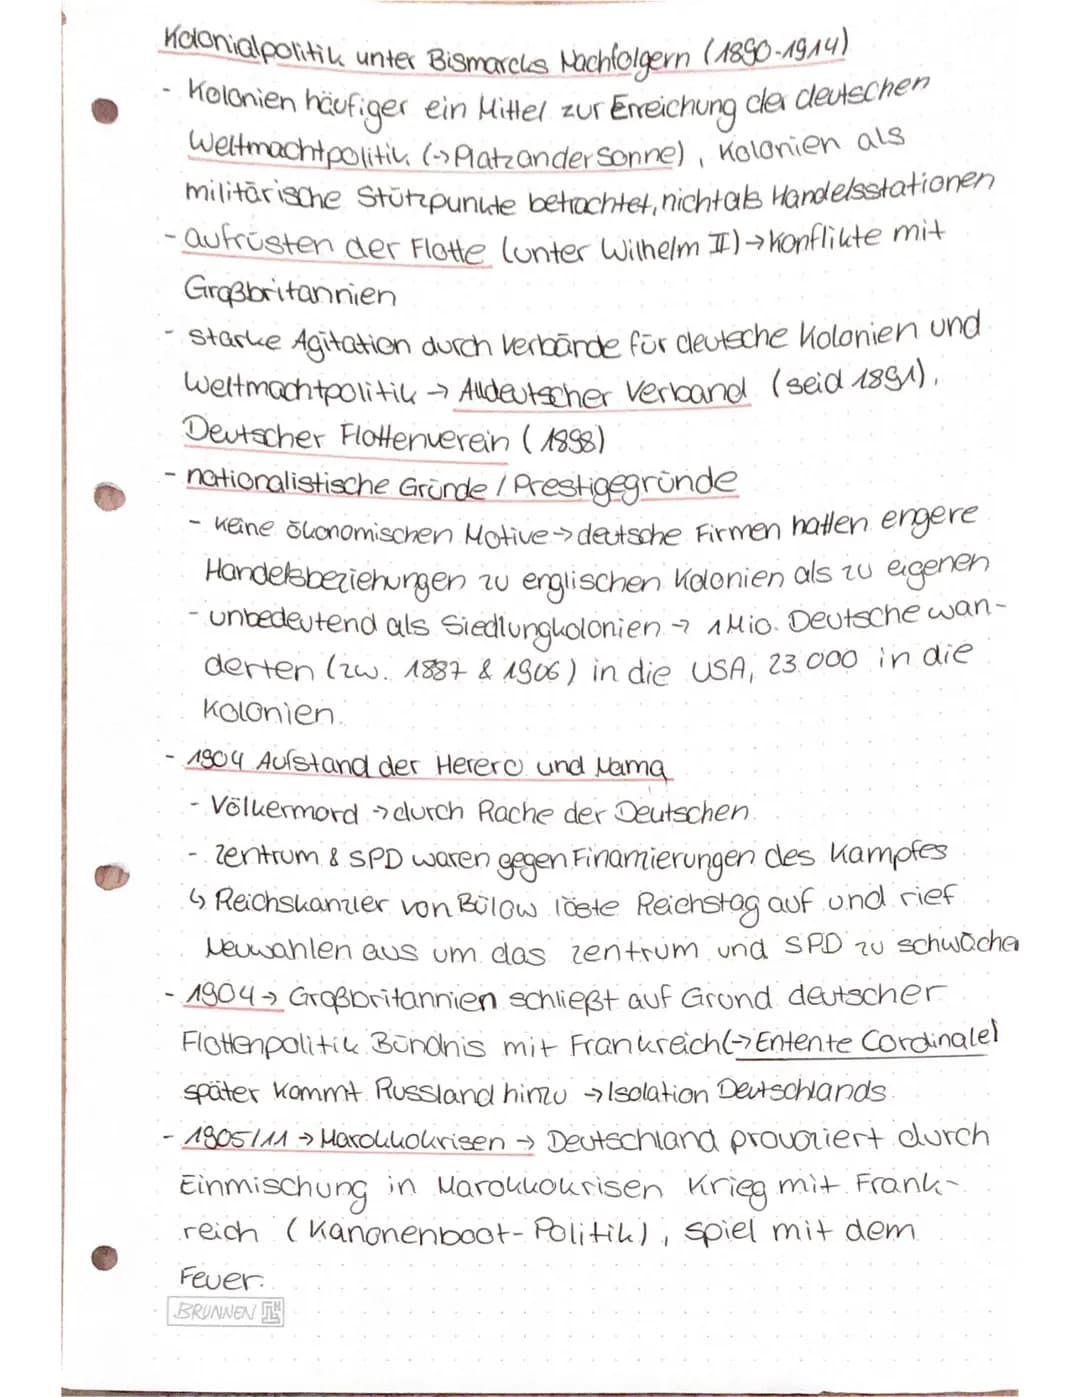 Kolonialpolitik unter Bismarcks Nachfolgern (1890-1914)
- Kolonien häufiger ein Mittel zur Erreichung der deutschen
Weltmachtpolitik (→Platz an der Sonne), Kolonien als
militärische Stützpunkte betrachtet, nicht als Handelsstationen
- aufrüsten der Flotte (unter Wilhelm II) → Konflikte mit
Großbritannien
- starke Agitation durch Verbände für deutsche Kolonien und
Weltmachtpolitik → Alldeutscher Verband (seid 1891),
Deutscher Flottenverein (1898)
- nationalistische Gründe / Prestigegründe
- keine ökonomischen Motive → deutsche Firmen hatten engere
Handelsbeziehungen zu englischen Kolonien als zu eigenen
- unbedeutend als Siedlungkolonien → 1 Mio. Deutsche wan-
derten (zw. 1887 & 1906) in die USA, 23.000 in die
Kolonien.
- 1904 Aufstand der Herero und Nama
- Völkermord → durch Rache der Deutschen
- Zentrum & SPD waren gegen Finanzierungen des Kampfes
↳ Reichskanzler von Bülow löste Reichstag auf und rief
Neuwahlen aus um das Zentrum und SPD zu schwächen
- 1904 → Großbritannien schließt auf Grund deutscher
Flottenpolitik Bündnis mit Frankreich (→ Entente Cordinale)
später kommt Russland hinzu → Isolation Deutschlands
- 1905/11 → Marokkokrisen → Deutschland provoziert durch
Einmischung in Marokkokrisen Krieg mit Frank-
reich (Kanonenboot-Politik), spiel mit dem
Feuer.
BRUNNEN